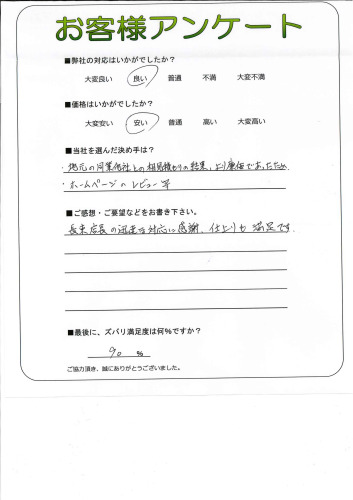 お客様アンケート
■弊社の対応はいかがでしたか？
大変良い 良い 普通 不満 大変不満
■価格はいかがでしたか？
大変安い 安い 普通 高い 大変高い
■当社を選んだ決め手は？
・地元の同業他社との相見積もりの結果、より廉価であったため
・ホームページのレビュー等
■ご感想・ご要望などをお書き下さい。
長束店長の迅速な対応に感謝、仕上りも満足です。
■最後に、ズバリ満足度は何％ですか？
90 ％
ご協力頂き、誠にありがとうございました。